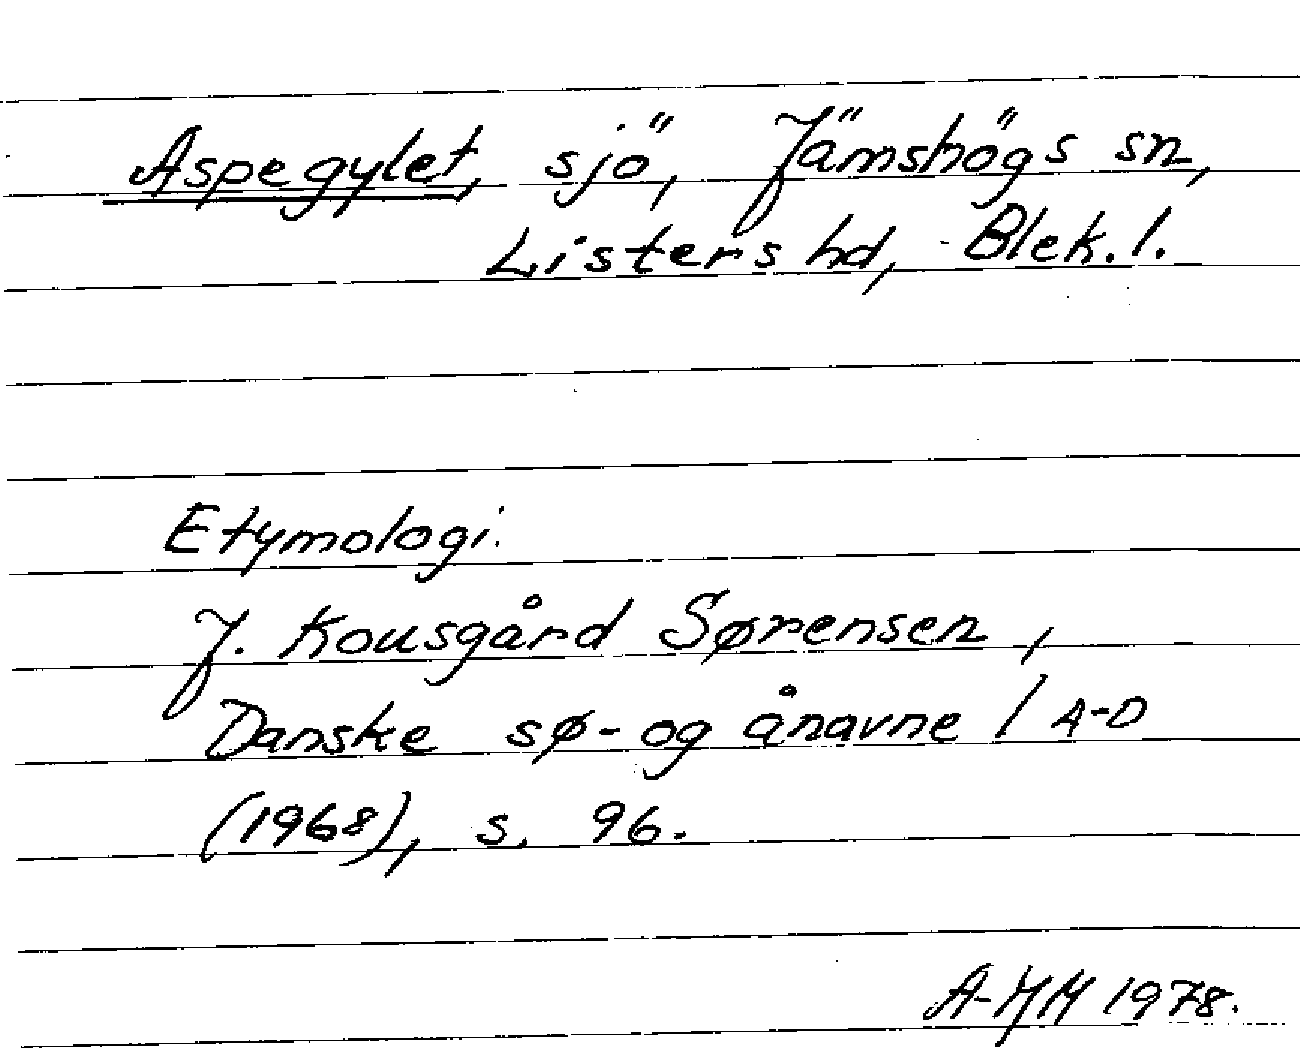 Aspegylet, sjö, Jämshögs sn,
Listers hd, Blek. l.
Etymologi.
J. Kousgård Sørensen,
Danske sø- og ånavne 1 A-D
(1968), s. 96.
1978.